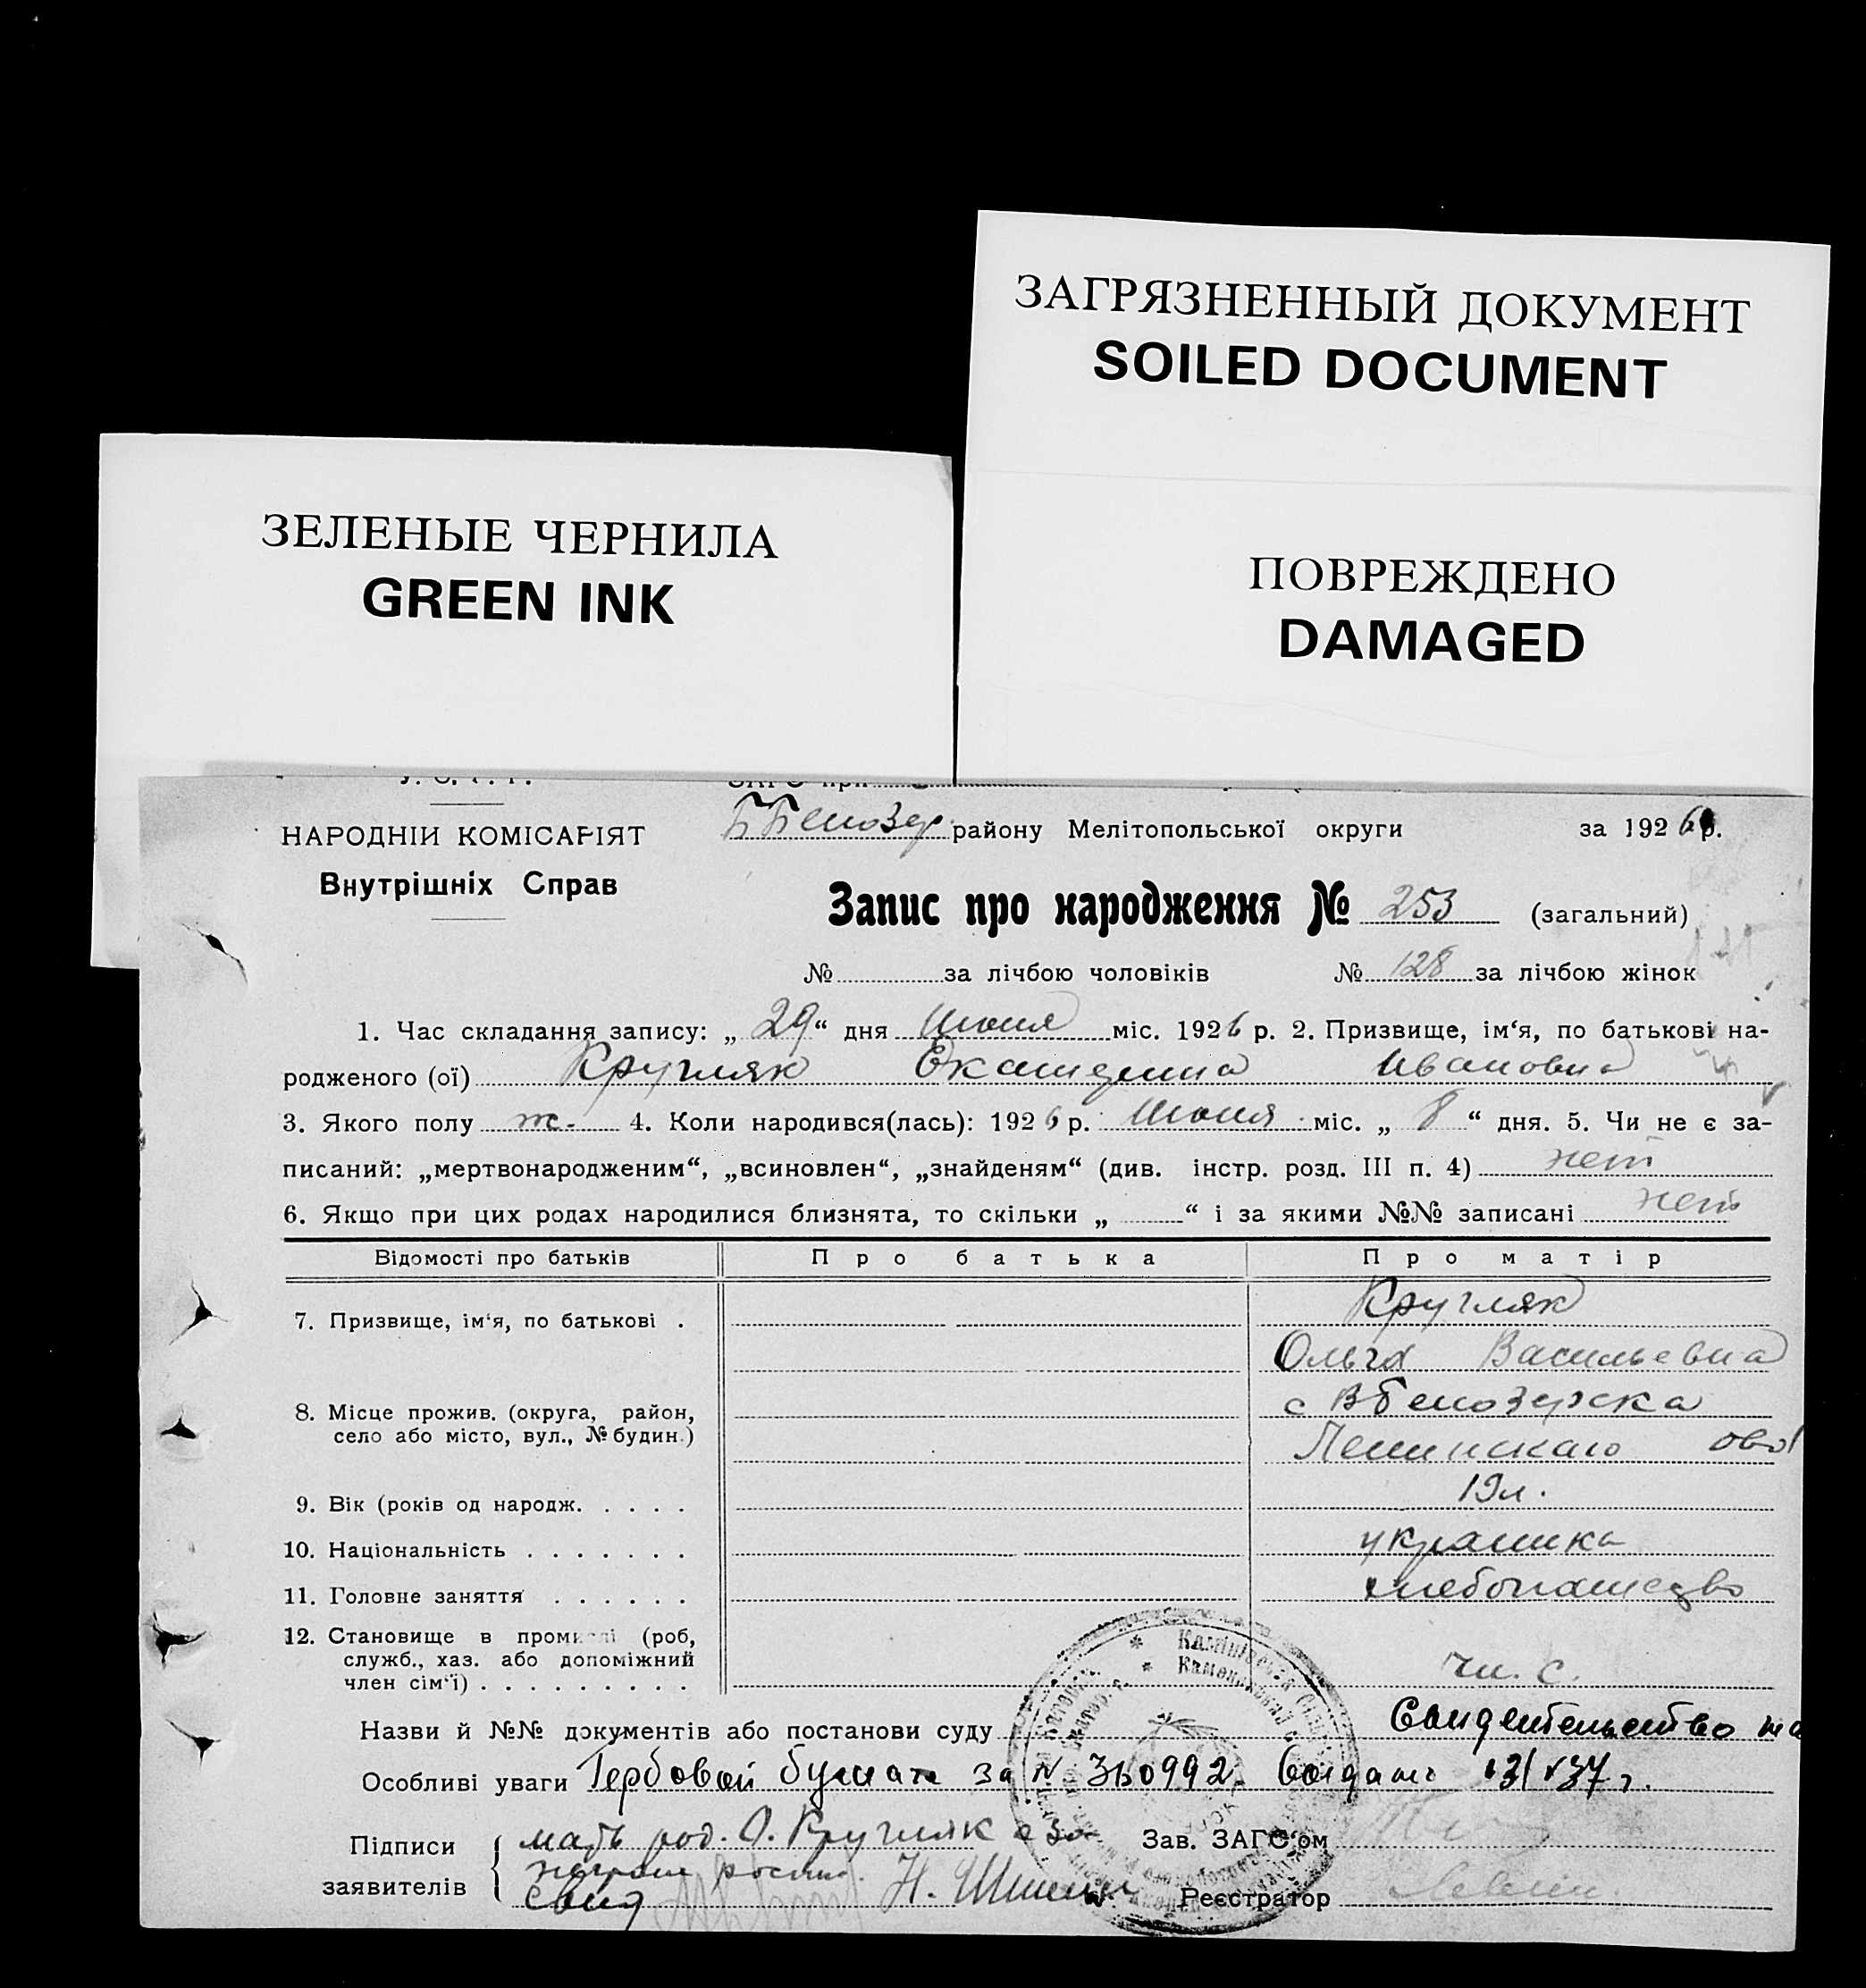 ЗАГРЯЗНЕННЫЙ ДОКУМЕНТ
SOILED DOCUMENT
ЗЕЛЕНЫЕ ЧЕРНИЛА
GREEN INK
ПОВРЕЖДЕНО
DAMAGED
НАРОДНІЙ КОМІСАРІЯТ
Внутрішніх Справ
району Мелітопольської округи за 1926 р.
Запис про народження № 253 (загальний)
№ за лічбою чоловіків № 128 за лічбою жінок
1. Час складання запису: „ 29 “ дня Июня міс. 1926 р. 2. Призвище, ім‘я, по батькові на-
родженого (ої) Кругляк Екатерина Ивановна
3. Якого полу ж. 4. Коли народився(лась): 1926 р. Июня міс. „ 8 “ дня. 5. Чи не є за-
писаний: „мертвонародженим“, „всиновлен“, „знайденям“ (див. інстр. розд. III п. 4) нет
6. Якщо при цих родах народилися близнята, то скільки „ “ і за якими №№ записані нет
Відомості про батьків Про батька Про матір
7. Призвище, ім‘я, по батькові . Кругляк
Ольга Васильевна
8. Місце прожив. (округа, район, с Вбелозерска
село або місто, вул., № будин.) Ленинскаго
9. Вік (років од народж. . . . . 19 л.
10. Національність . . . . . . . украинка
11. Головне заняття . . . . . . хлебопашество
12. Становище в промислі (роб,
служб., хаз. або допоміжний
член сім‘ї) . . . . . . . . . чл. с.
Назви й №№ документів або постанови суду Свидетельство на
Особливі уваги Гербовой бумаге за №
Підписи мать род. О. Кругляк а за
заявителів
Зав. ЗАГС‘ом
Реєстратор